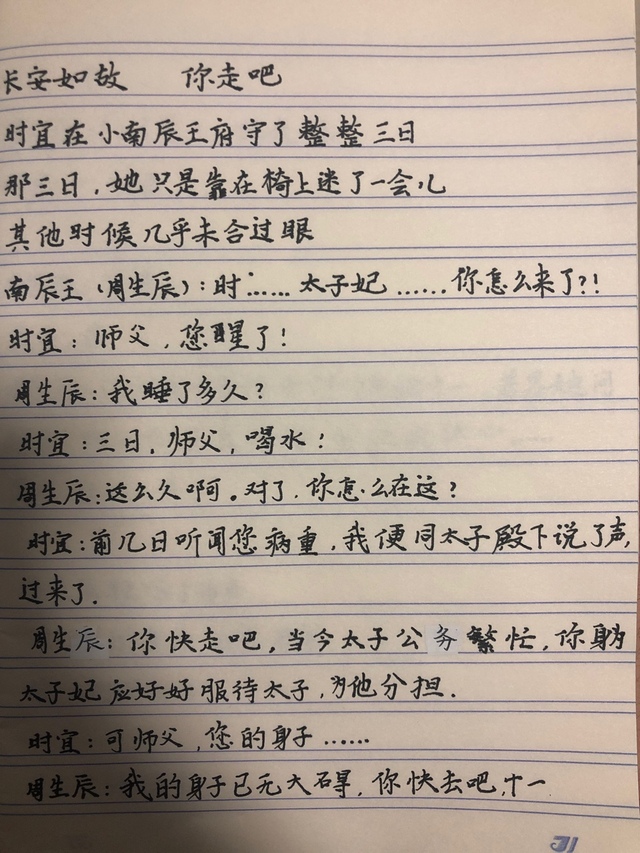 长安如故 你走吧
时宜在小南辰王府守了整整三日
那三日，她只是靠在椅上迷了一会儿
其他时候几乎未合过眼
南辰王（周生辰）：时……太子妃……你怎么来了?!
时宜：师父，您醒了！
周生辰：我睡了多久？
时宜：三日，师父，喝水！
周生辰：这么久啊。对了，你怎么在这？
时宜：前几日听闻您病重，我便同太子殿下说了声，
过来了.
周生辰：你快走吧，当今太子公务繁忙，你身为
太子妃应好好服待太子，为他分担.
时宜：可师父，您的身子……
周生辰：我的身子已无大碍，你快去吧，十一